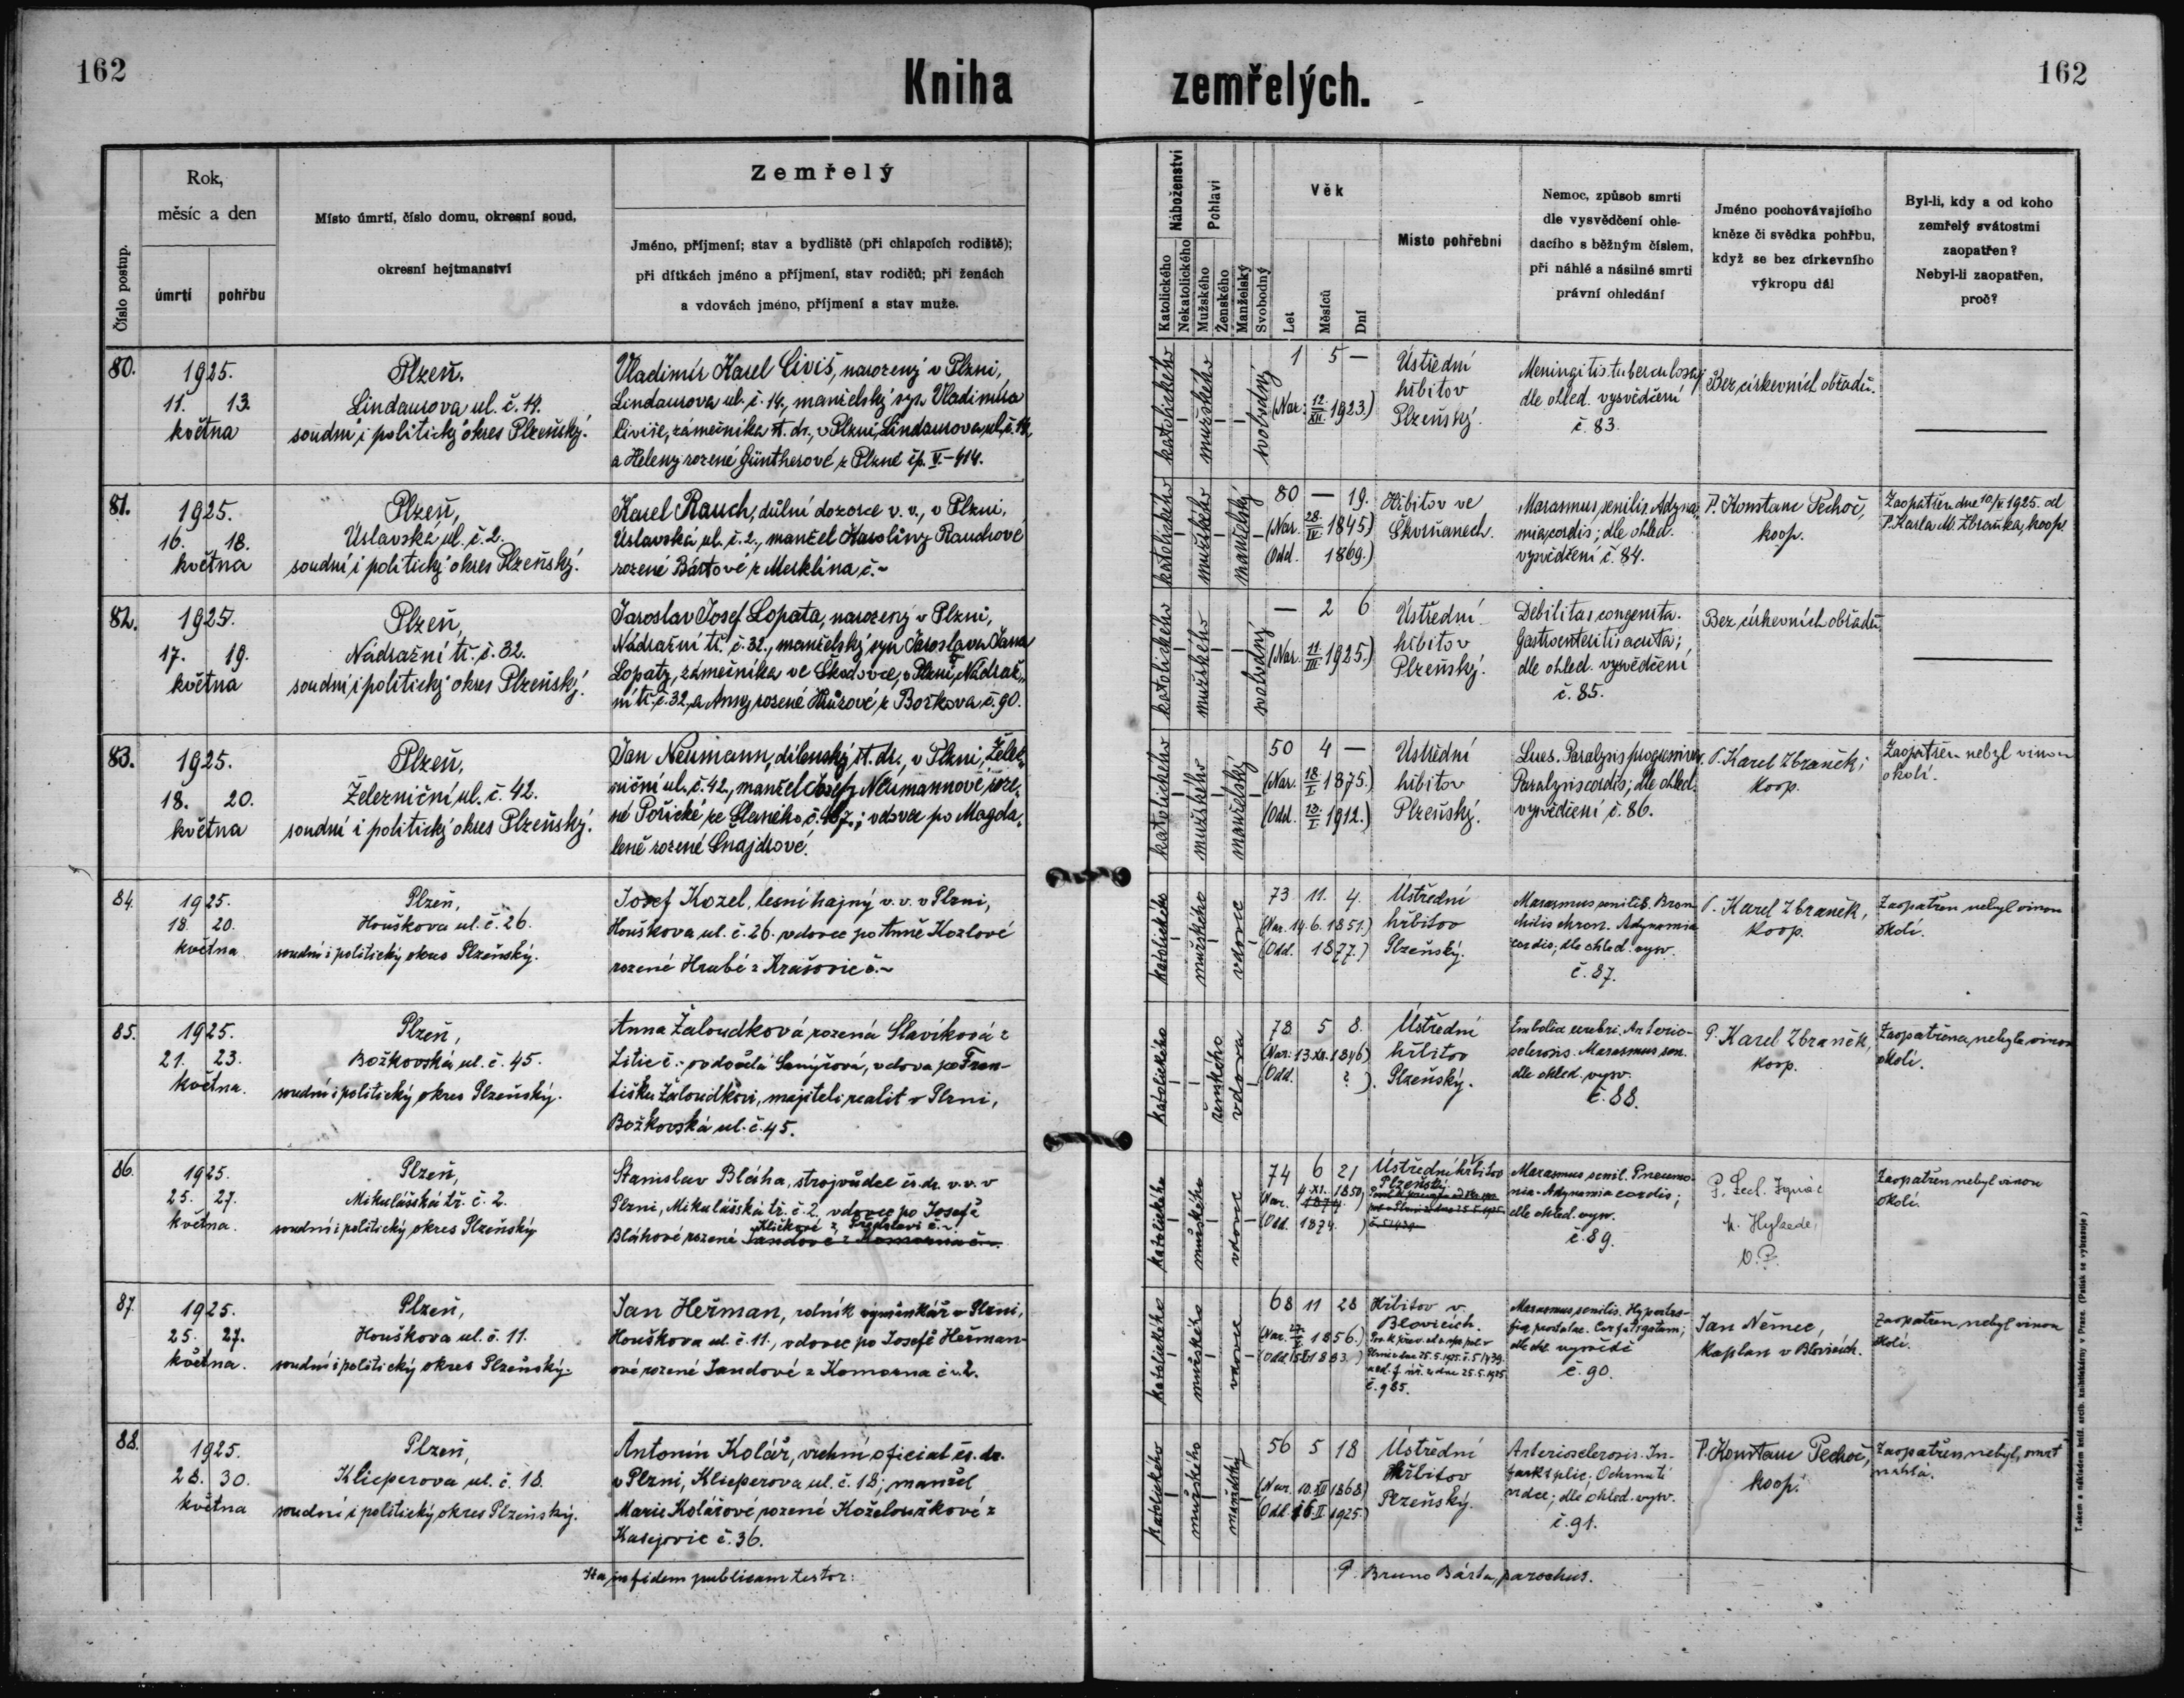 162
Kniha zemřelých.
162
Číslo postup.
Rok,
měsíc a den
úmrtí
pohřbu
Místo úmrtí, číslo domu, okresní soud,
okresní hejtmanství
Zemřelý
Jméno, příjmení; stav a bydliště (při chlapcích rodiště);
při dítkách jméno a příjmení, stav rodičů; při ženách
a vdovách jméno, příjmení a stav muže.
Náboženství
Katolického
Nekatolického
Pohlaví
Mužského
Ženského
Manželský
Svobodný
Věk
Let
Měsíců
Dní
Místo pohřební
Nemoc, způsob smrti
dle vysvědčení ohle-
dacího s běžným číslem,
při náhlé a násilné smrti
právní ohledání
Jméno pochovávajícího
kněze či svědka pohřbu,
když se bez církevního
výkropu dál
Byl-li, kdy a od koho
zemřelý svátostmi
zaopatřen?
Nebyl-li zaopatřen,
proč?
80.
1925.
11. 13.
května
Plzeň.
Lindaurova ul. č. 14.
soudní i politický okres Plzeňský.
Vladimír Karel Civiš, narozený v Plzni,
Lindaurova ul. č. 14., manželský syn Vladimíra
Civiše, zámečníka st. dr., v Plzni, Lindaurova ul. č. 14,
a Heleny rozené Güntherové z Plzně čp. V.-414.
katolického
mužského
svobodný
1 5 —
(Nar. 12./XII. 1923.)
Ústřední
hřbitov
Plzeňský.
Meningitis tuberculosa;
dle ohled. vysvědčení
č. 83.
Bez církevních obřadů.
81.
1925.
16. 18.
května
Plzeň,
Úslavská ul. č. 2.
soudní i politický okres Plzeňský.
Karel Rauch, důlní dozorce v. v., v Plzni,
Úslavská ul. č. 2., manžel Karoliny Rauchové
rozené Bártové z Merklína č.~
katolického
mužského
manželský
80 — 19.
(Nar. 28./IV. 1845)
(Odd. 1869.)
Hřbitov ve
Skvrňanech.
Marasmus senilis. Adyna-
mia cordis; dle ohled.
vysvědčení č. 84.
P. Konstanc Pechoč,
koop.
Zaopatřen dne 10/V 1925. od
P. Karla M. Zbraňka, koop.
82.
1925.
17. 19.
května
Plzeň,
Nádražní tř. č. 32.
soudní i politický okres Plzeňský.
Jaroslav Josef Lopata, narozený v Plzni,
Nádražní tř. č. 32., manželský syn Jaroslava Jana
Lopaty, zámečníka ve Škodovce, v Plzni, Nádraž-
ní tř. č. 32., a Anny rozené Hrůzové z Božkova č. 90.
katolického
mužského
svobodný
— 2 6
(Nar. 11/III 1925.)
Ústřední
hřbitov
Plzeňský.
Debilitas congenita.
Gastroenteritis acuta;
dle ohled. vysvědčení
č. 85.
Bez církevních obřadů.
83.
1925.
18. 20.
května
Plzeň,
Železniční ul. č. 42.
soudní i politický okres Plzeňský.
Jan Neumann, dílenský st. dr., v Plzni, Želez-
niční ul. č. 42., manžel Josefy Neumannové roze-
né Pořické ze Slaného, č. 467.; vdovec po Magda-
leně rozené Šnajdrové.
katolického
mužského
manželský
50 4 —
(Nar. 18./I. 1875.)
(Odd. 13./I. 1912.)
Ústřední
hřbitov
Plzeňský.
Lues. Paralysis progressiva.
Paralysis cordis; dle ohled.
vysvědčení č. 86.
P. Karel Zbraněk;
koop.
Zaopatřen nebyl vinou
okolí.
84.
1925.
18. 20.
května
Plzeň,
Houškova ul. č. 26.
soudní i politický okres Plzeňský.
Josef Kozel, lesní hajný v. v. v Plzni,
Houškova ul. č. 26. vdovec po Anně Kozlové
rozené Hrubé z Krašovic č.~
katolického
mužského
vdovec
73 11. 4.
(Nar. 14. 6. 1851.)
(Odd. 1877.)
Ústřední
hřbitov
Plzeňský.
Marasmus senilis. Bron-
chitis chron. Adynamia
cordis; dle ohled. vysv.
č. 87.
P. Karel Zbraněk,
koop.
Zaopatřen nebyl vinou
okolí.
85.
1925.
21. 23.
května.
Plzeň,
Božkovská ul. č. 45.
soudní i politický okres Plzeňský.
Anna Žaloudková rozená Slavíková z
Litic č.- ovdovělá Samýrová, vdova po Fran-
tišku Žaloudkovi, majiteli realit v Plzni,
Božkovská ul. č. 45.
katolického
ženského
vdova
78 5 8.
(Nar. 13. XII. 1846)
(Odd. ? ).
Ústřední
hřbitov
Plzeňský.
Embolia cerebri. Arterio-
sclerosis. Marasmus sen.
dle ohled. vysv.
č. 88.
P. Karel Zbraněk,
koop.
Zaopatřena nebyla vinou
okolí.
86.
1925.
25. 27.
května.
Plzeň,
Mikulášská tř. č. 2.
soudní i politický okres Plzeňský
Stanislav Bláha, strojvůdce čs. dr. v. v. v
Plzni, Mikulášská tř. č. 2. vdovec po Josefě
Kličkové z
Bláhové rozené Jandové z Komorna č.~
katolického
mužského
vdovec
74 6 21
4. XI. 1850
(Nar. 1874
(Odd. 1874. )
Ústřední hřbitov
Plzeňský.
Marasmus senil. Pneumo-
nia. Adynamia cordis;
dle ohled. vysv.
č. 89.
Zaopatřen nebyl vinou
okolí.
87.
1925.
25. 27.
května.
Plzeň,
Houškova ul. č. 11.
soudní i politický okres Plzeňský.
Jan Heřman, rolník výměnkář v Plzni,
Houškova ul. č. 11., vdovec po Josefě Heřman-
ové rozené Jandové z Komorna č. 2.
katolického
mužského
vdovec
68 11 28
(Nar. 1856.)
(Odd. 1883.)
Hřbitov v
Blovicích.
č. 985.
Marasmus senilis. Hypertro-
fia prostatae. Cor fatigatum;
dle ohl. vysvědč
č. 90.
Jan Němec,
kaplan v Blovicích.
Zaopatřen nebyl vinou
okolí.
88.
1925.
28. 30.
května
Plzeň,
Klicperova ul. č. 18.
soudní i politický okres Plzeňský.
Antonín Kolář, vrchní oficiál čs. dr.
v Plzni, Klicperova ul. č. 18; manžel
Marie Kolářové rozené Koželoužkové z
Kasejovic č. 36.
katolického
mužského
manželský
56 5 18
(Nar. 10. XII 1868)
(Odd. 16. II 1925.)
Ústřední
hřbitov
Plzeňský.
Arteriosclerosis. In-
farkt plic; Ochrnutí
srdce; dle ohled. vysv.
č. 91.
P. Konstanc Pechoč,
koop.
Zaopatřen nebyl, smrt
náhlá.
Ita in fidem publicam testor:
P. Bruno Bárta, parochus.